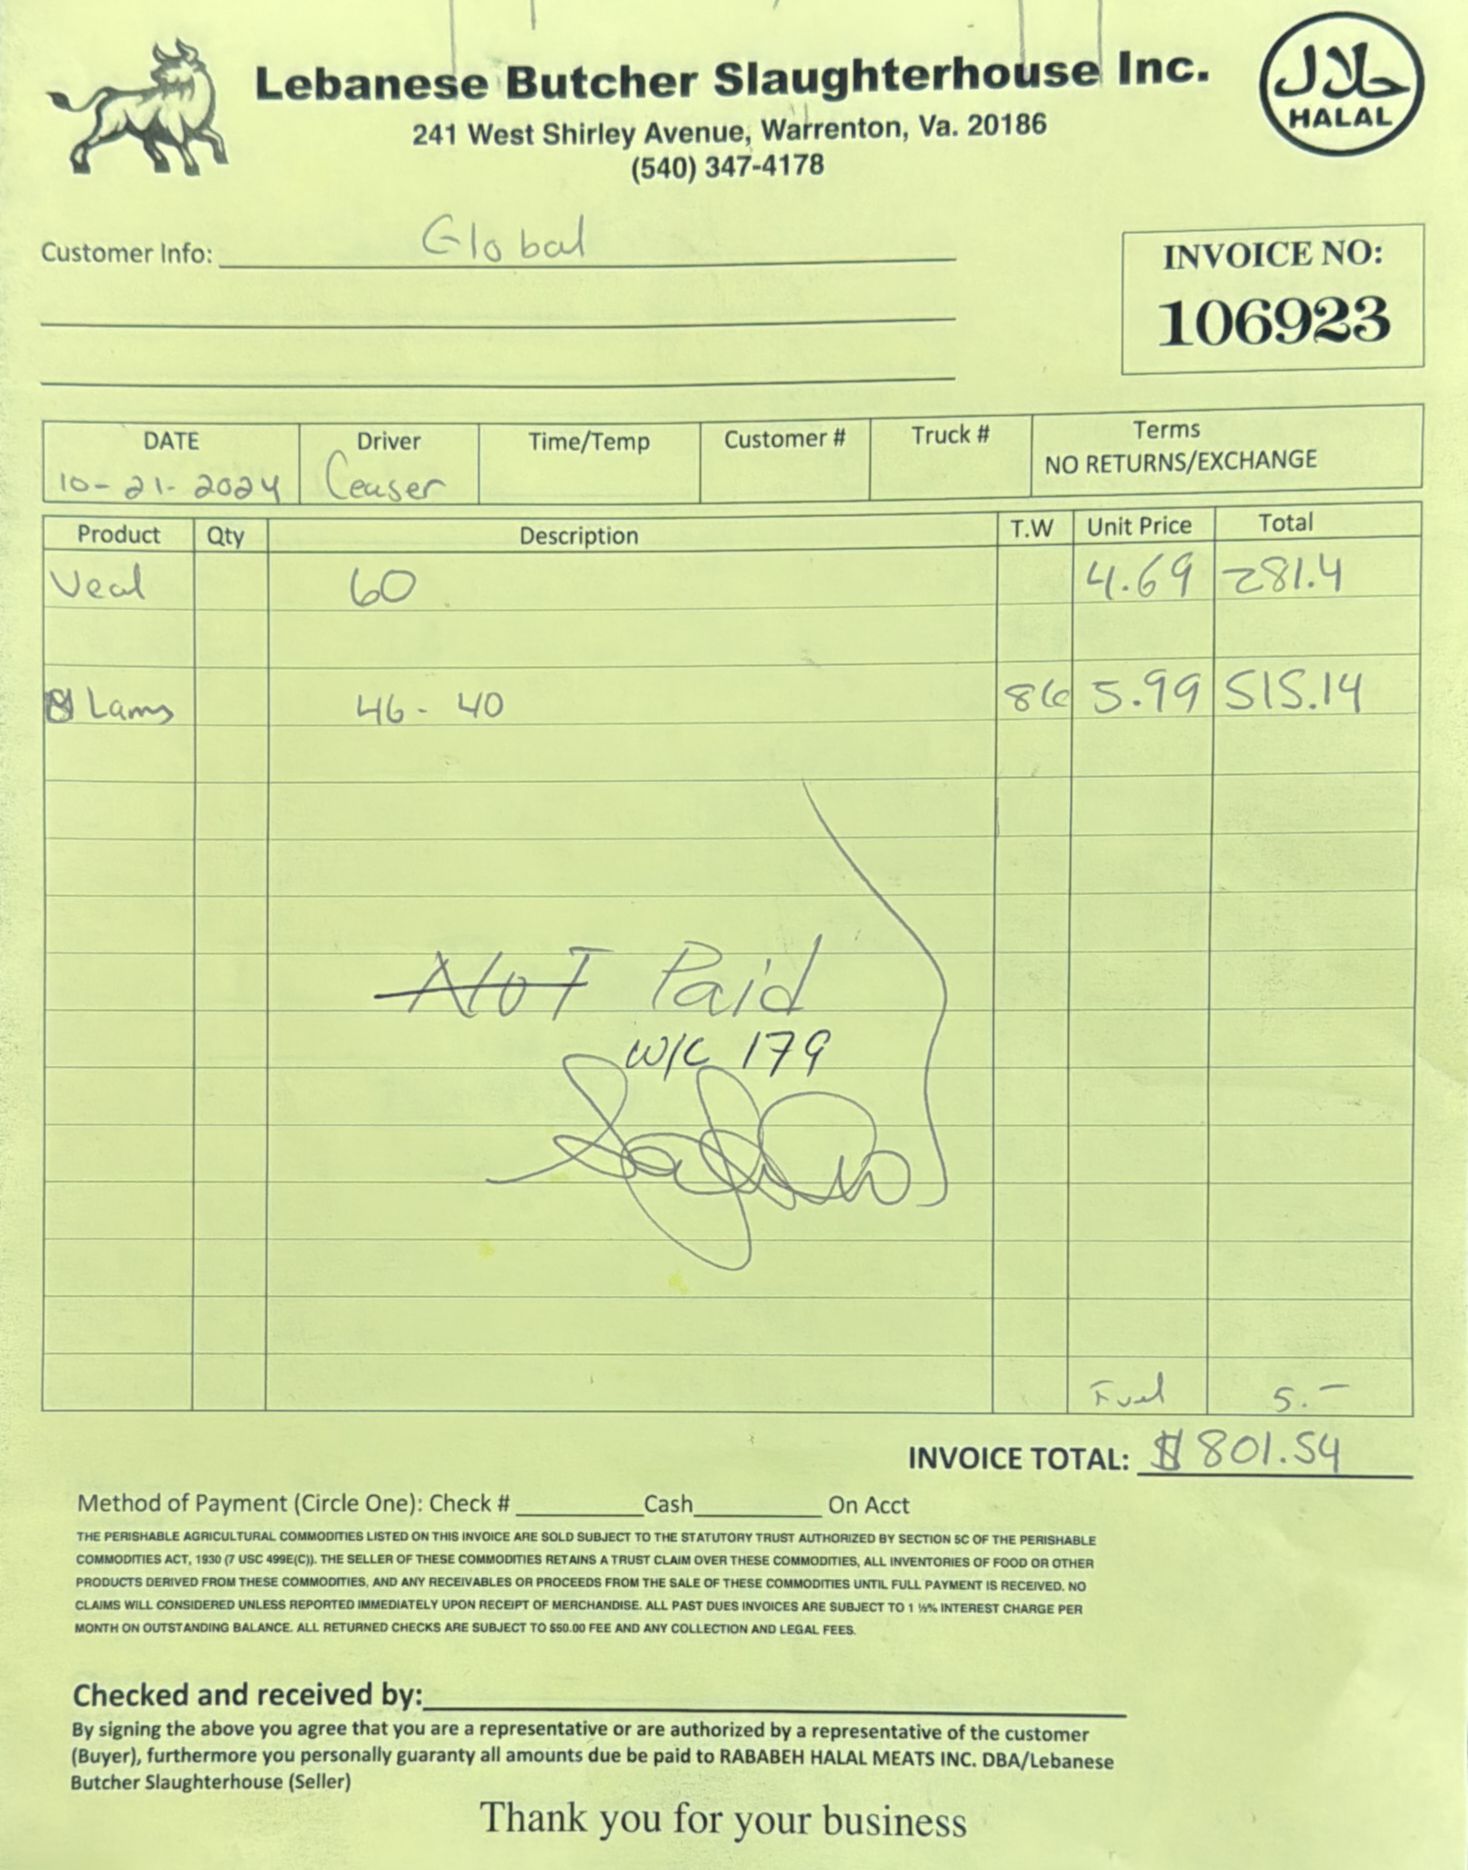 Lebanese Butcher Slaughterhouse Inc.
241 West Shirley Avenue, Warrenton, Va. 20186
(540) 347-4178
حلال
HALAL
Customer Info: Global
INVOICE NO:
106923
DATE Driver Time/Temp Customer # Truck # Terms
10-21-2024 Ceaser NO RETURNS/EXCHANGE
Product Qty Description T.W Unit Price Total
Veal 60 4.69 281.4
Lams 46- 40 86 5.99 515.14
NOT Paid
W/C 179
Fuel 5.-
INVOICE TOTAL: $ 801.54
Method of Payment (Circle One): Check # Cash On Acct
THE PERISHABLE AGRICULTURAL COMMODITIES LISTED ON THIS INVOICE ARE SOLD SUBJECT TO THE STATUTORY TRUST AUTHORIZED BY SECTION 5C OF THE PERISHABLE
COMMODITIES ACT, 1930 (7 USC 499E(C)). THE SELLER OF THESE COMMODITIES RETAINS A TRUST CLAIM OVER THESE COMMODITIES, ALL INVENTORIES OF FOOD OR OTHER
PRODUCTS DERIVED FROM THESE COMMODITIES, AND ANY RECEIVABLES OR PROCEEDS FROM THE SALE OF THESE COMMODITIES UNTIL FULL PAYMENT IS RECEIVED. NO
CLAIMS WILL CONSIDERED UNLESS REPORTED IMMEDIATELY UPON RECEIPT OF MERCHANDISE. ALL PAST DUES INVOICES ARE SUBJECT TO 1 ½% INTEREST CHARGE PER
MONTH ON OUTSTANDING BALANCE. ALL RETURNED CHECKS ARE SUBJECT TO $50.00 FEE AND ANY COLLECTION AND LEGAL FEES.
Checked and received by:
By signing the above you agree that you are a representative or are authorized by a representative of the customer
(Buyer), furthermore you personally guaranty all amounts due be paid to RABABEH HALAL MEATS INC. DBA/Lebanese
Butcher Slaughterhouse (Seller)
Thank you for your business